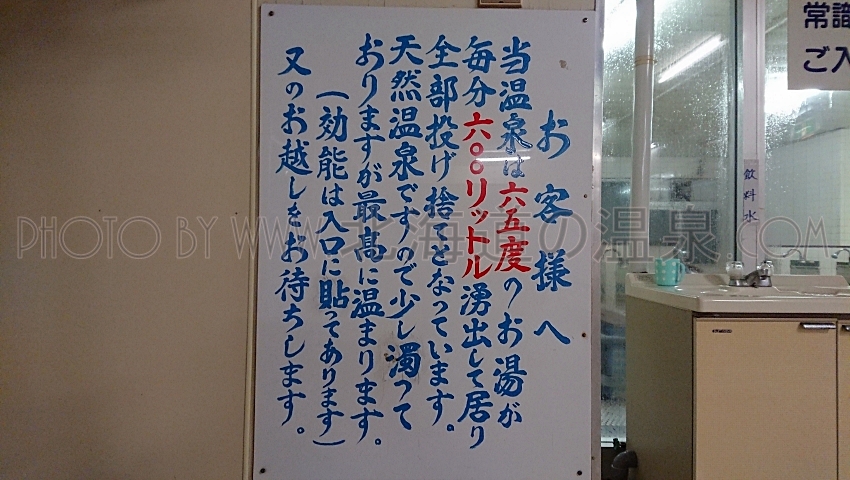 お客様へ
当温泉は六五度のお湯が
毎分六〇〇リットル湧出して居り
全部投げ捨てとなっています。
天然温泉ですので少し濁って
おりますが最高に温まります。
(効能は入口に貼ってあります)
又のお越しをお待ちします。
常識
ご入
飲料水
PHOTO BY WWW.北海道の温泉.COM